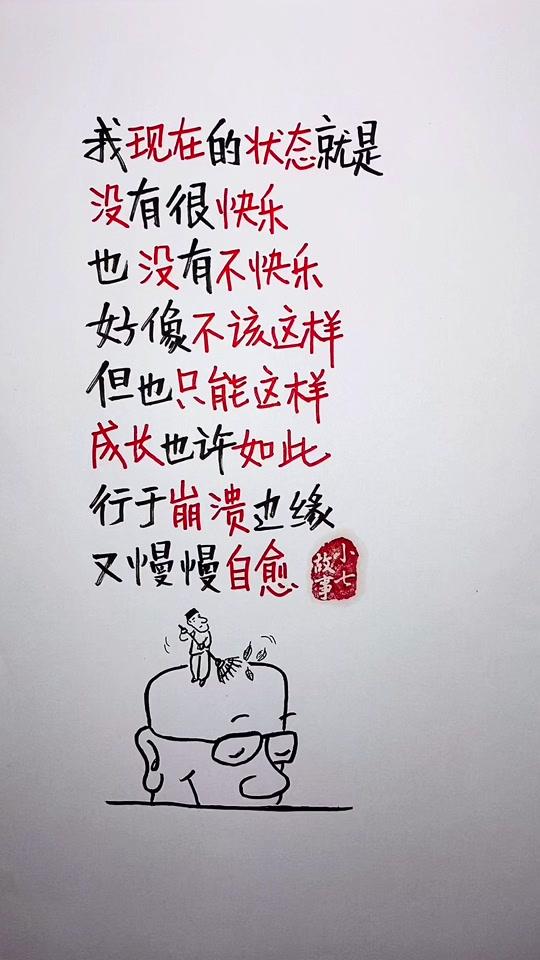 我现在的状态就是
没有很快乐
也没有不快乐
好像不该这样
但也只能这样
成长也许如此
行于崩溃边缘
又慢慢自愈
小七
故事